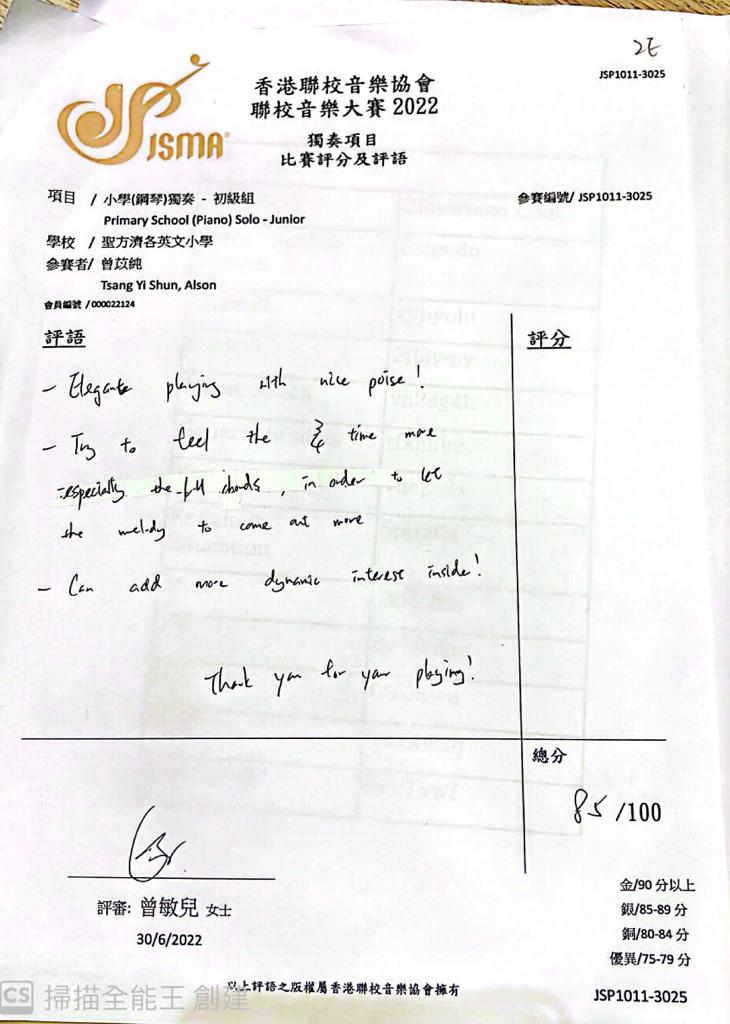 2E
JSP1011-3025
JSMA
香港聯校音樂協會
聯校音樂大賽 2022
獨奏項目
比賽評分及評語
項目 / 小學(鋼琴)獨奏 - 初級組
參賽編號/ JSP1011-3025
Primary School (Piano) Solo - Junior
學校 / 聖方濟各英文小學
參賽者/ 曾苡純
Tsang Yi Shun, Alson
會員編號 / 000022124
評語
評分
- Elegante playing with nice poise!
- Try to feel the 3/4 time more
especially the full chords, in order to let
the melody to come out more
- Can add more dynamic interest inside!
Thank you for your playing!
總分
85/100
評審: 曾敏兒 女士
30/6/2022
金/90 分以上
銀/85-89 分
銅/80-84 分
優異/75-79 分
以上評語之版權屬香港聯校音樂協會擁有
JSP1011-3025
CS 掃描全能王 創建